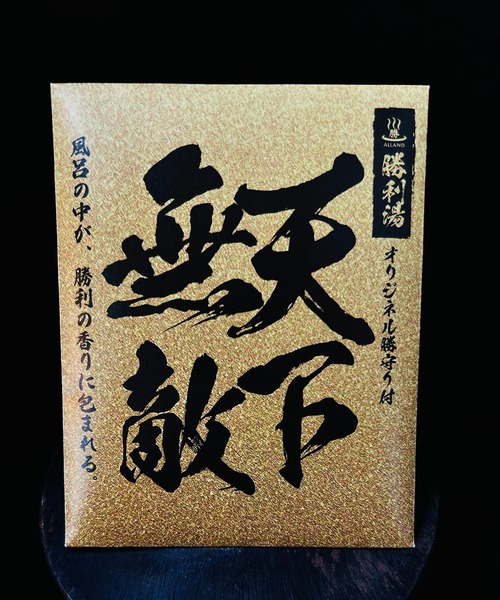 勝
ALLAND
勝利湯
オリジネル勝守り付
天下
無敵
風呂の中が、勝利の香りに包まれる。